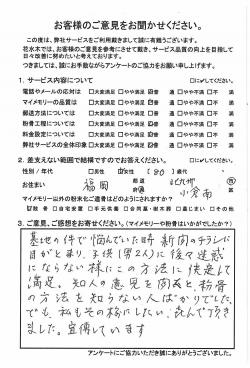 お客様のご意見をお聞かせください。
この度は、弊社サービスをご利用頂きまして誠に有難うございます。
花水木では、お客様のご意見を参考にさせて戴き、サービス品質の向上を目指して
日々改善に努めたいと考えております。
つきましては、誠にお手数ながらアンケートのご協力をお願い申し上げます。
1. サービス内容について □に✓してください。
電話やメールの応対は □大変満足 □やや満足 ☑普 通 □やや不満 □不 満
マイメモリーの品質は □大変満足 □やや満足 ☑普 通 □やや不満 □不 満
郵送方法について □大変満足 □やや満足 ☑普 通 □やや不満 □不 満
粉骨工程について □大変満足 □やや満足 ☑普 通 □やや不満 □不 満
料金設定については □大変満足 □やや満足 ☑普 通 □やや不満 □不 満
弊社サービスの全体印象 □大変満足 □やや満足 ☑普 通 □やや不満 □不 満
2. 差支えない範囲で結構ですのでお答えください。 □に✓してください。
性別/年代 □男性 ☑女性 (80) 歳代
お住まい 福岡 北九州 小倉南
マイメモリー以外の粉末化ご遺骨はどのようにされますか?
3. ご意見、ご感想をお寄せください。(マイメモリーや粉骨はいかがでしたか?)
墓地の件で悩んでいた時 新聞のチラシに
目がとまり、子供(男2人)に後々迷惑
にならない様にこの方法に決定して
満足、知人の意見を聞くと、粉骨
の方法を知らない人ばかりでした、
でも、私もその様にしたい、
ました。宣伝しています
アンケートにご協力いただき誠にありがとうございました。